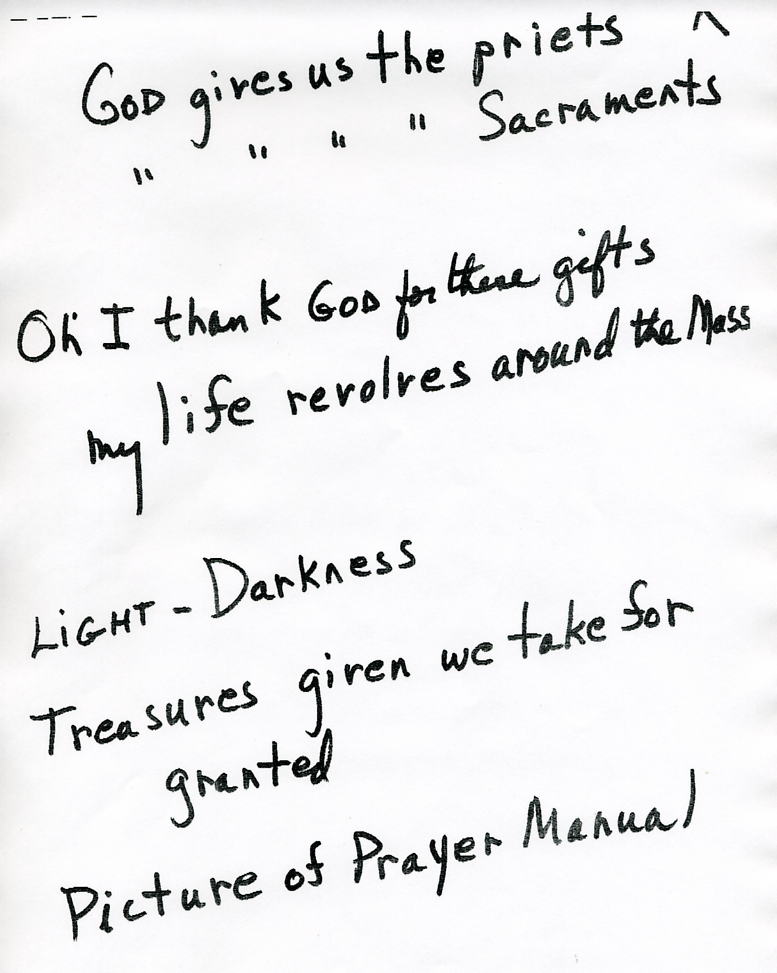 GOD gives us the priets
" " " " Sacraments
Oh I thank GOD for these gifts
my life revolves around the Mass
LiGHT - Darkness
Treasures given we take for
granted
Picture of Prayer Manual